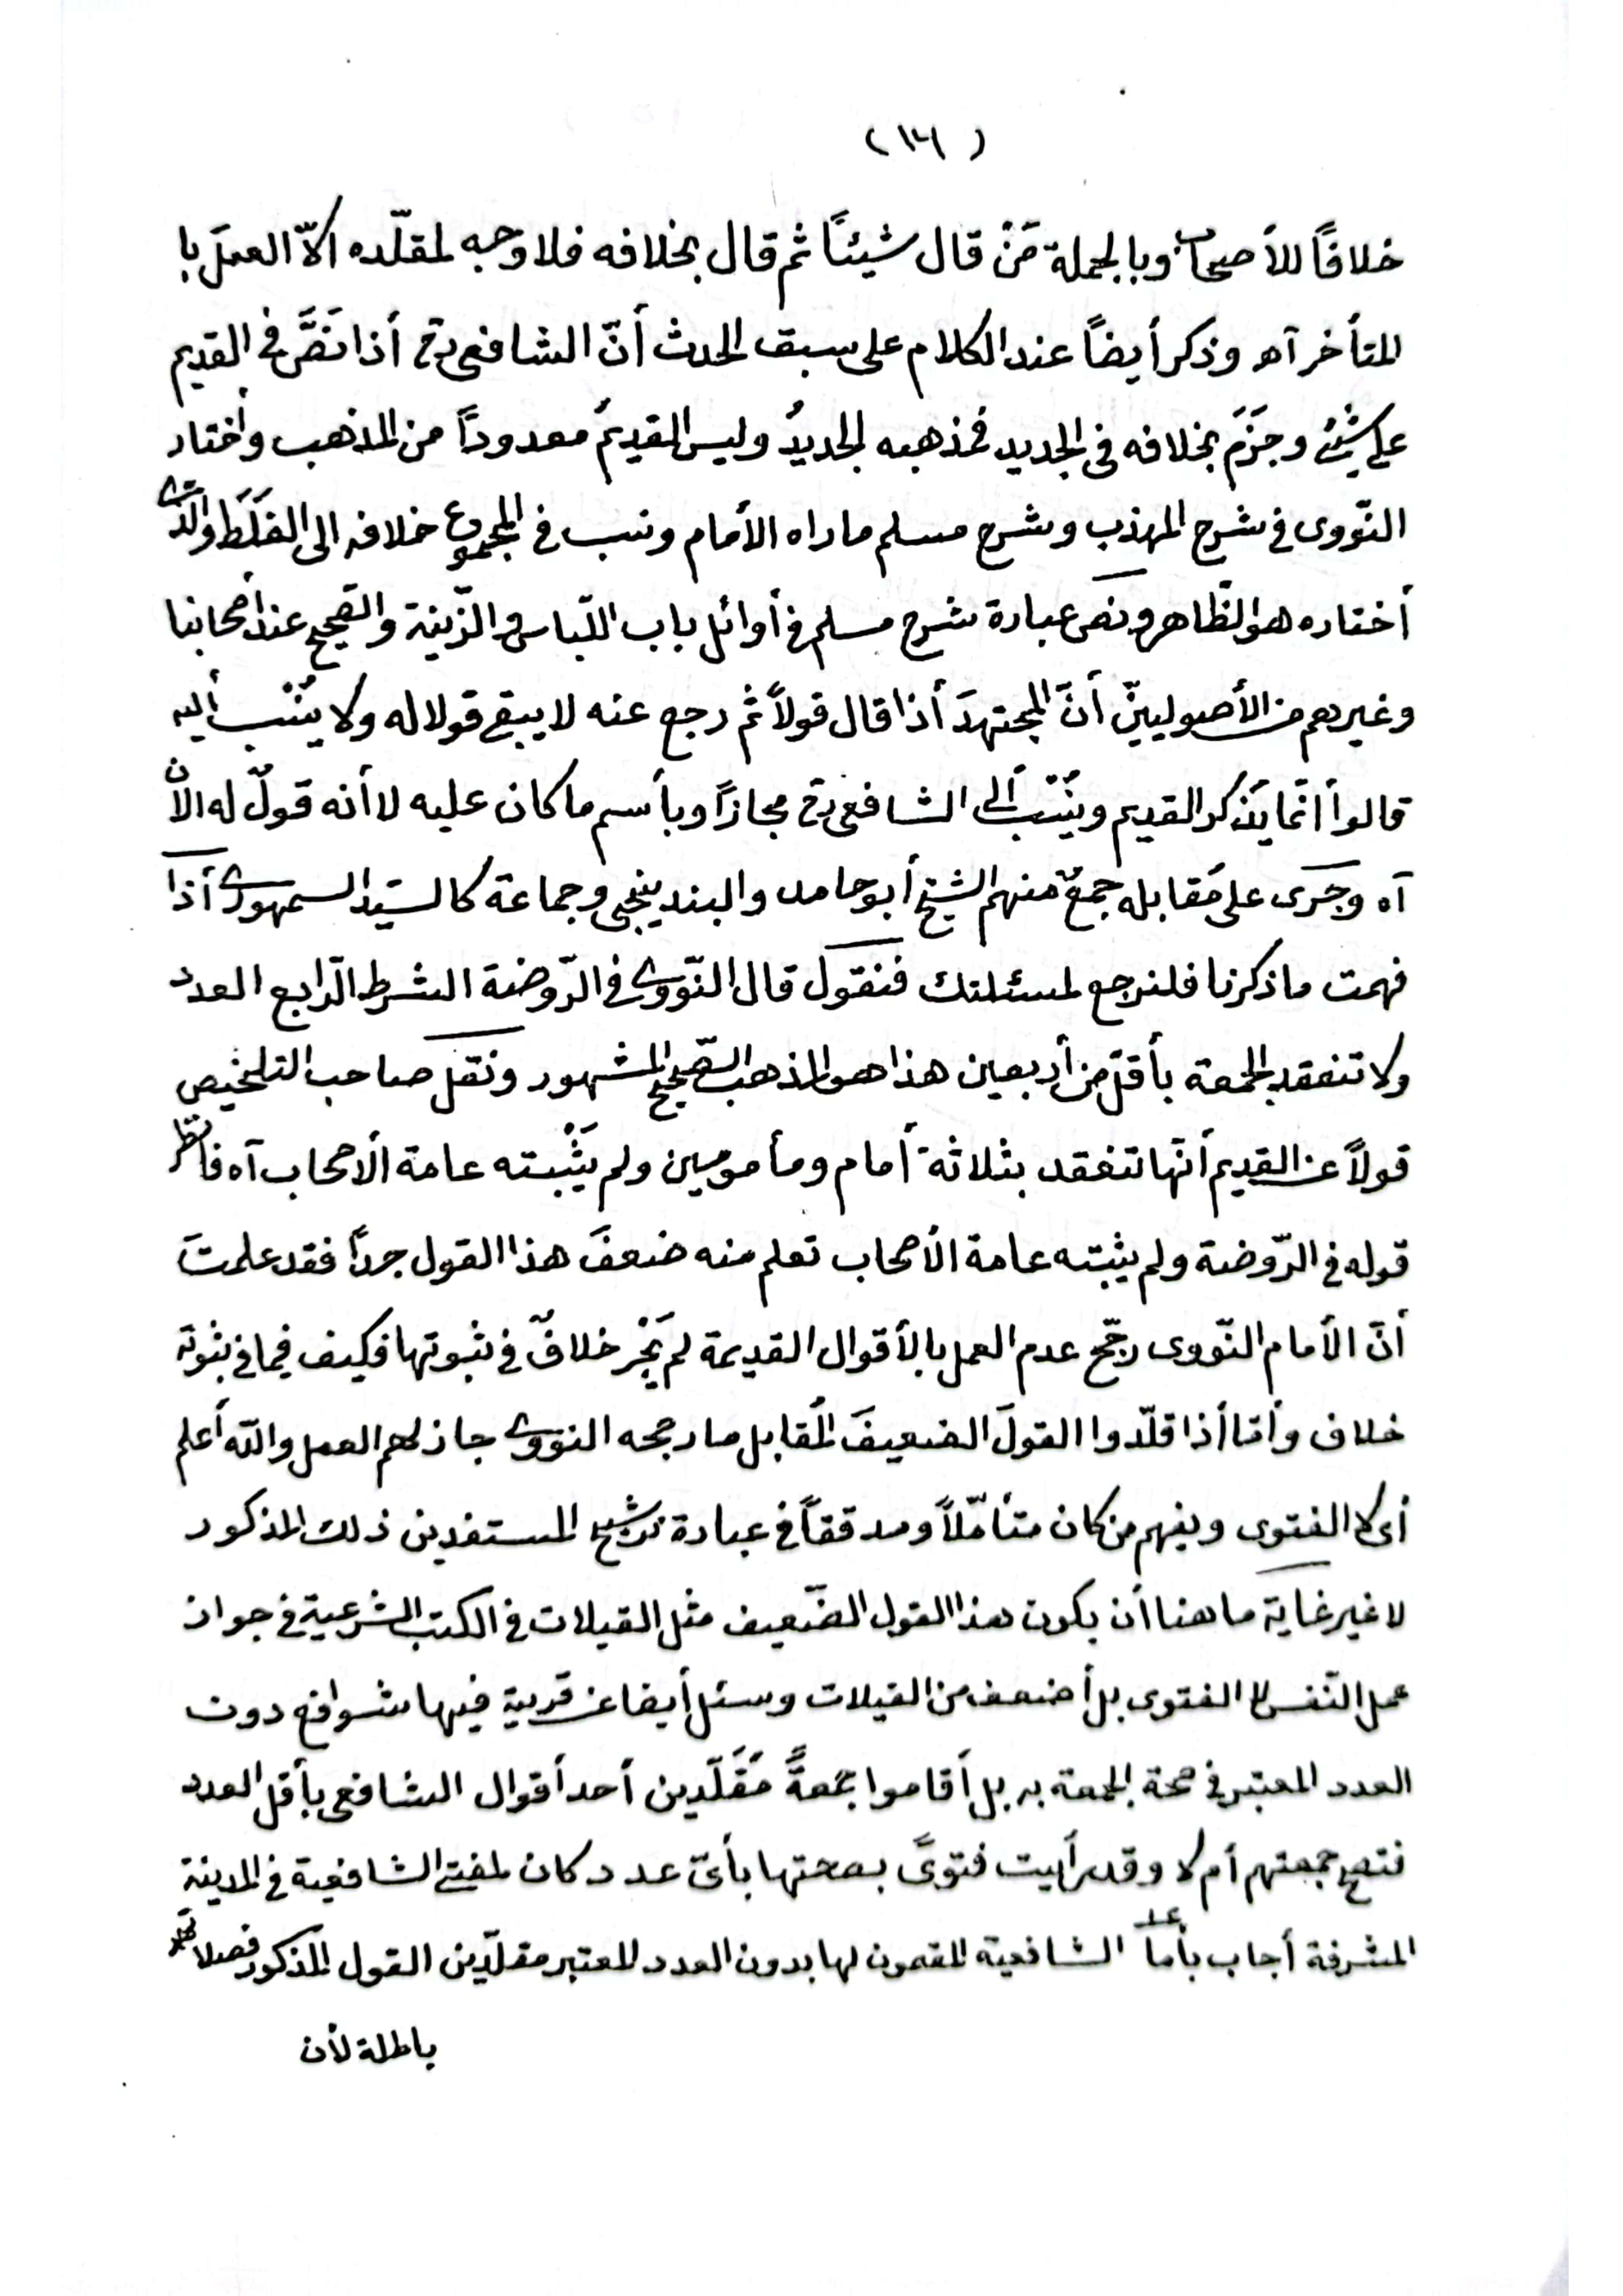 (١٤)
خلافًا للأصحاب وبالجملة مَنْ قال شيئًا ثم قال بخلافه فلا وجه لمقلّده الاّ العمَل با
المتأخر آه وذكر أيضاً عند الكلام على سبق الحدث أنّ الشافعى رح أذا نَصَّ فى القديم
على شئ وجَزَمَ بخلافه فى الجديد فمذهبه الجديدُ وليس القديمُ معدوداً من المذهب وأختار
النّووى فى شرح المهذب وشرح مسلم ما راه الأمام ونسب فى المجموع خلافه الى الغَلَط والّذى
أختاره هو الظّاهر ونص عبارة شرح مسلم فى أوائل باب اللّباس والزّينة والصّحيح عند أصحابنا
وغيرهم من الأصوليينّ أنّ المجتهدَ أذا قال قولاً ثم رجع عنه لا يبقى قولا له ولا يُنْسب أليه
قالوا أنّما يذكر القديم ويُنْسَب ألى الشافعى رح مجازاً وبأسم ما كان عليه لا أنه قولٌ له الأن
آه وجَرَى على مُقابله جمعٌ منهم الشيخ أبو حامد والبندينجى وجماعة كالسّيد السمهودى أذا
فهمت ما ذكرنا فلنرجع لمسئلتك فنقول قال النّووى فى الرّوضة الشرط الرّابع العدد
ولا تنعقد الجمعة بأقلّ من أربعين هذا هو المذهب الصّحيح المشهور ونقل صاحب التلخيص
قولاً عن القديم أنّها تنعقد بثلاثة أمام ومأمومين ولم يَثْبته عامة الأصحاب آه فانظر
قوله فى الرّوضة ولم يثبته عامة الأصحاب تعلم منه ضعفَ هذا القول جداً فقد علمتَ
أنّ الأمام النّووى رجّح عدم العمل بالأقوال القديمة لم يَجْر خلافٌ فى ثبوتها فكيف فيما فى ثبوته
خلاف وأمّا أذا قلّدوا القولَ الضعيفَ المُقابل ما رجحه النووى جاز لهم العمل والله أعلم
أى لا الفتوى ويفهم من كان متأمّلاً ومدققاً فى عبارة ترشيح المستفدين ذلك المذكور
لا غير غاية ما هنا أن يكون هذا القول الضّعيف مثل القيلات فى الكتب الشرعية فى جواز
عمل النّفس لا الفتوى بل أضعف من القيلات وسئل أيضا عن قرية فيها شوافع دون
العدد المعتبر فى صحة الجمعة به بل أقاموا جمعةً مُقَلّدين أحد أقوال الشافعى بأقل العدد
فتصح جمعتهم أم لا وقد رأيت فتوىً بصحتها بأىّ عدد كان لمفتى الشافعية فى المدينة
المشرفة أجاب بأما الشافعية المقمون لها بدون العدد المعتبر مقلّدين القول المذكور
باطلة لأن